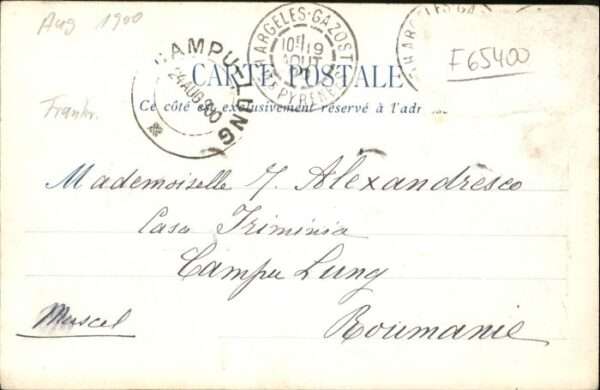 Aug 1900
F65400
ARGELES-GAZOST
10E 19
AOUT
PYRENEES
CAMPU-LUNG
24 AUG 900
CARTE POSTALE
Ce côté est exclusivement réservé à l'adr
Frankr.
Mademoiselle J. Alexandresco
Casa Iriminia
Campu Lung
Muscel
Roumanie